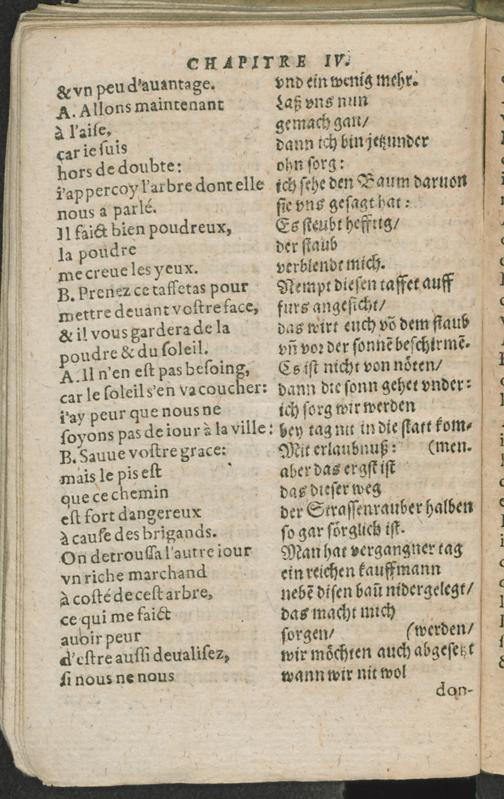 CHAPITRE IV.
& vn peu d'auantage.
A. Allons maintenant
à l'aiſe,
car ie ſuis
hors de doubte:
i'appercoy l'arbre dont elle
nous a parlé.
Il faict bien poudreux,
la poudre
me creue les yeux.
B. Prenez ce taffetas pour
mettre deuant voſtre face,
& il vous gardera de la
poudre & du ſoleil.
A. Il n'en eſt pas beſoing,
car le ſoleil s'en va coucher:
i'ay peur que nous ne
ſoyons pas de iour à la ville:
B. Sauue voſtre grace:
mais le pis eſt
que ce chemin
eſt fort dangereux
à cauſe des brigands.
On detrouſſa l'autre iour
vn riche marchand
à coſté de ceſt arbre,
ce qui me faict
auoir peur
d'eſtre auſſi deualiſez,
ſi nous ne nous
vnd ein wenig mehr.
Laß vns nun
gemach gan/
dann ich bin jetzunder
ohn ſorg:
ich ſehe den Baum daruon
ſie vns geſagt hat:
Es ſteubt hefftig/
der ſtaub
verblendt mich.
Nempt dieſen taffet auff
furs angeſicht/
das wirt euch võ dem ſtaub
vñ vor der ſonnẽ beſchirmẽ.
Es iſt nicht von nöten/
dann die ſonn gehet vnder:
ich ſorg wir werden
bey tag nit in die ſtatt kom-
Mit erlaubnuß: (men.
aber das ergſt iſt
das dieſer weg
der Straſſenrauber halben
ſo gar ſörglich iſt.
Man hat vergangner tag
ein reichen kauffmann
nebẽ diſen baũ nidergelegt/
das macht mich
ſorgen/ (werden/
wir möchten auch abgeſetzt
wann wir nit wol
don-